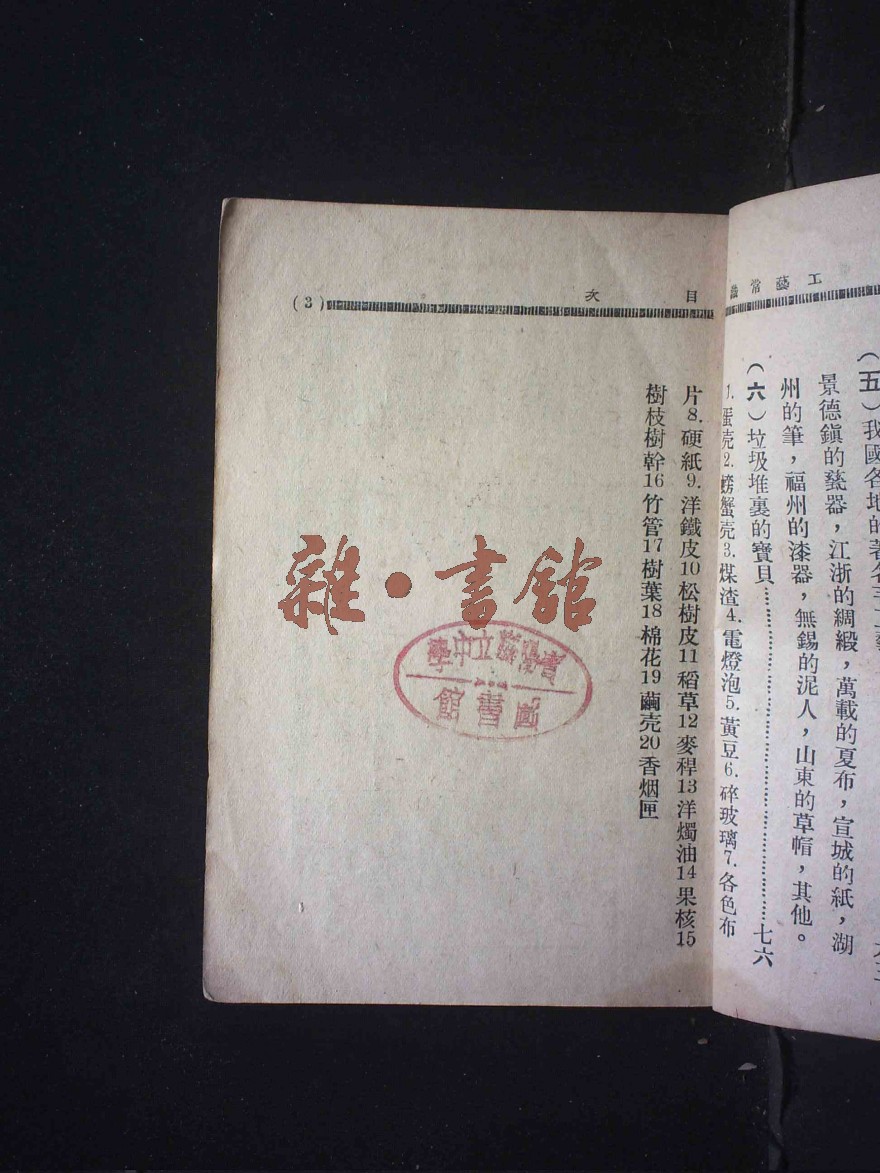 工藝常識
(五)我國各地的著名手工藝
景德鎭的甆器，江浙的綢緞，萬載的夏布，宣城的紙，湖
州的筆，福州的漆器，無錫的泥人，山東的草帽，其他。
(六)垃圾堆裏的寶貝……七六
1.蛋壳2.螃蟹壳3.煤渣4.電燈泡5.黃豆6.碎玻璃7.各色布
目次
(3)
片8.硬紙9.洋鐵皮10松樹皮11稻草12麥稈13洋燭油14果核15
樹枝樹幹16竹管17樹葉18棉花19繭壳20香烟匣
雜·書館
立中學
圖書館